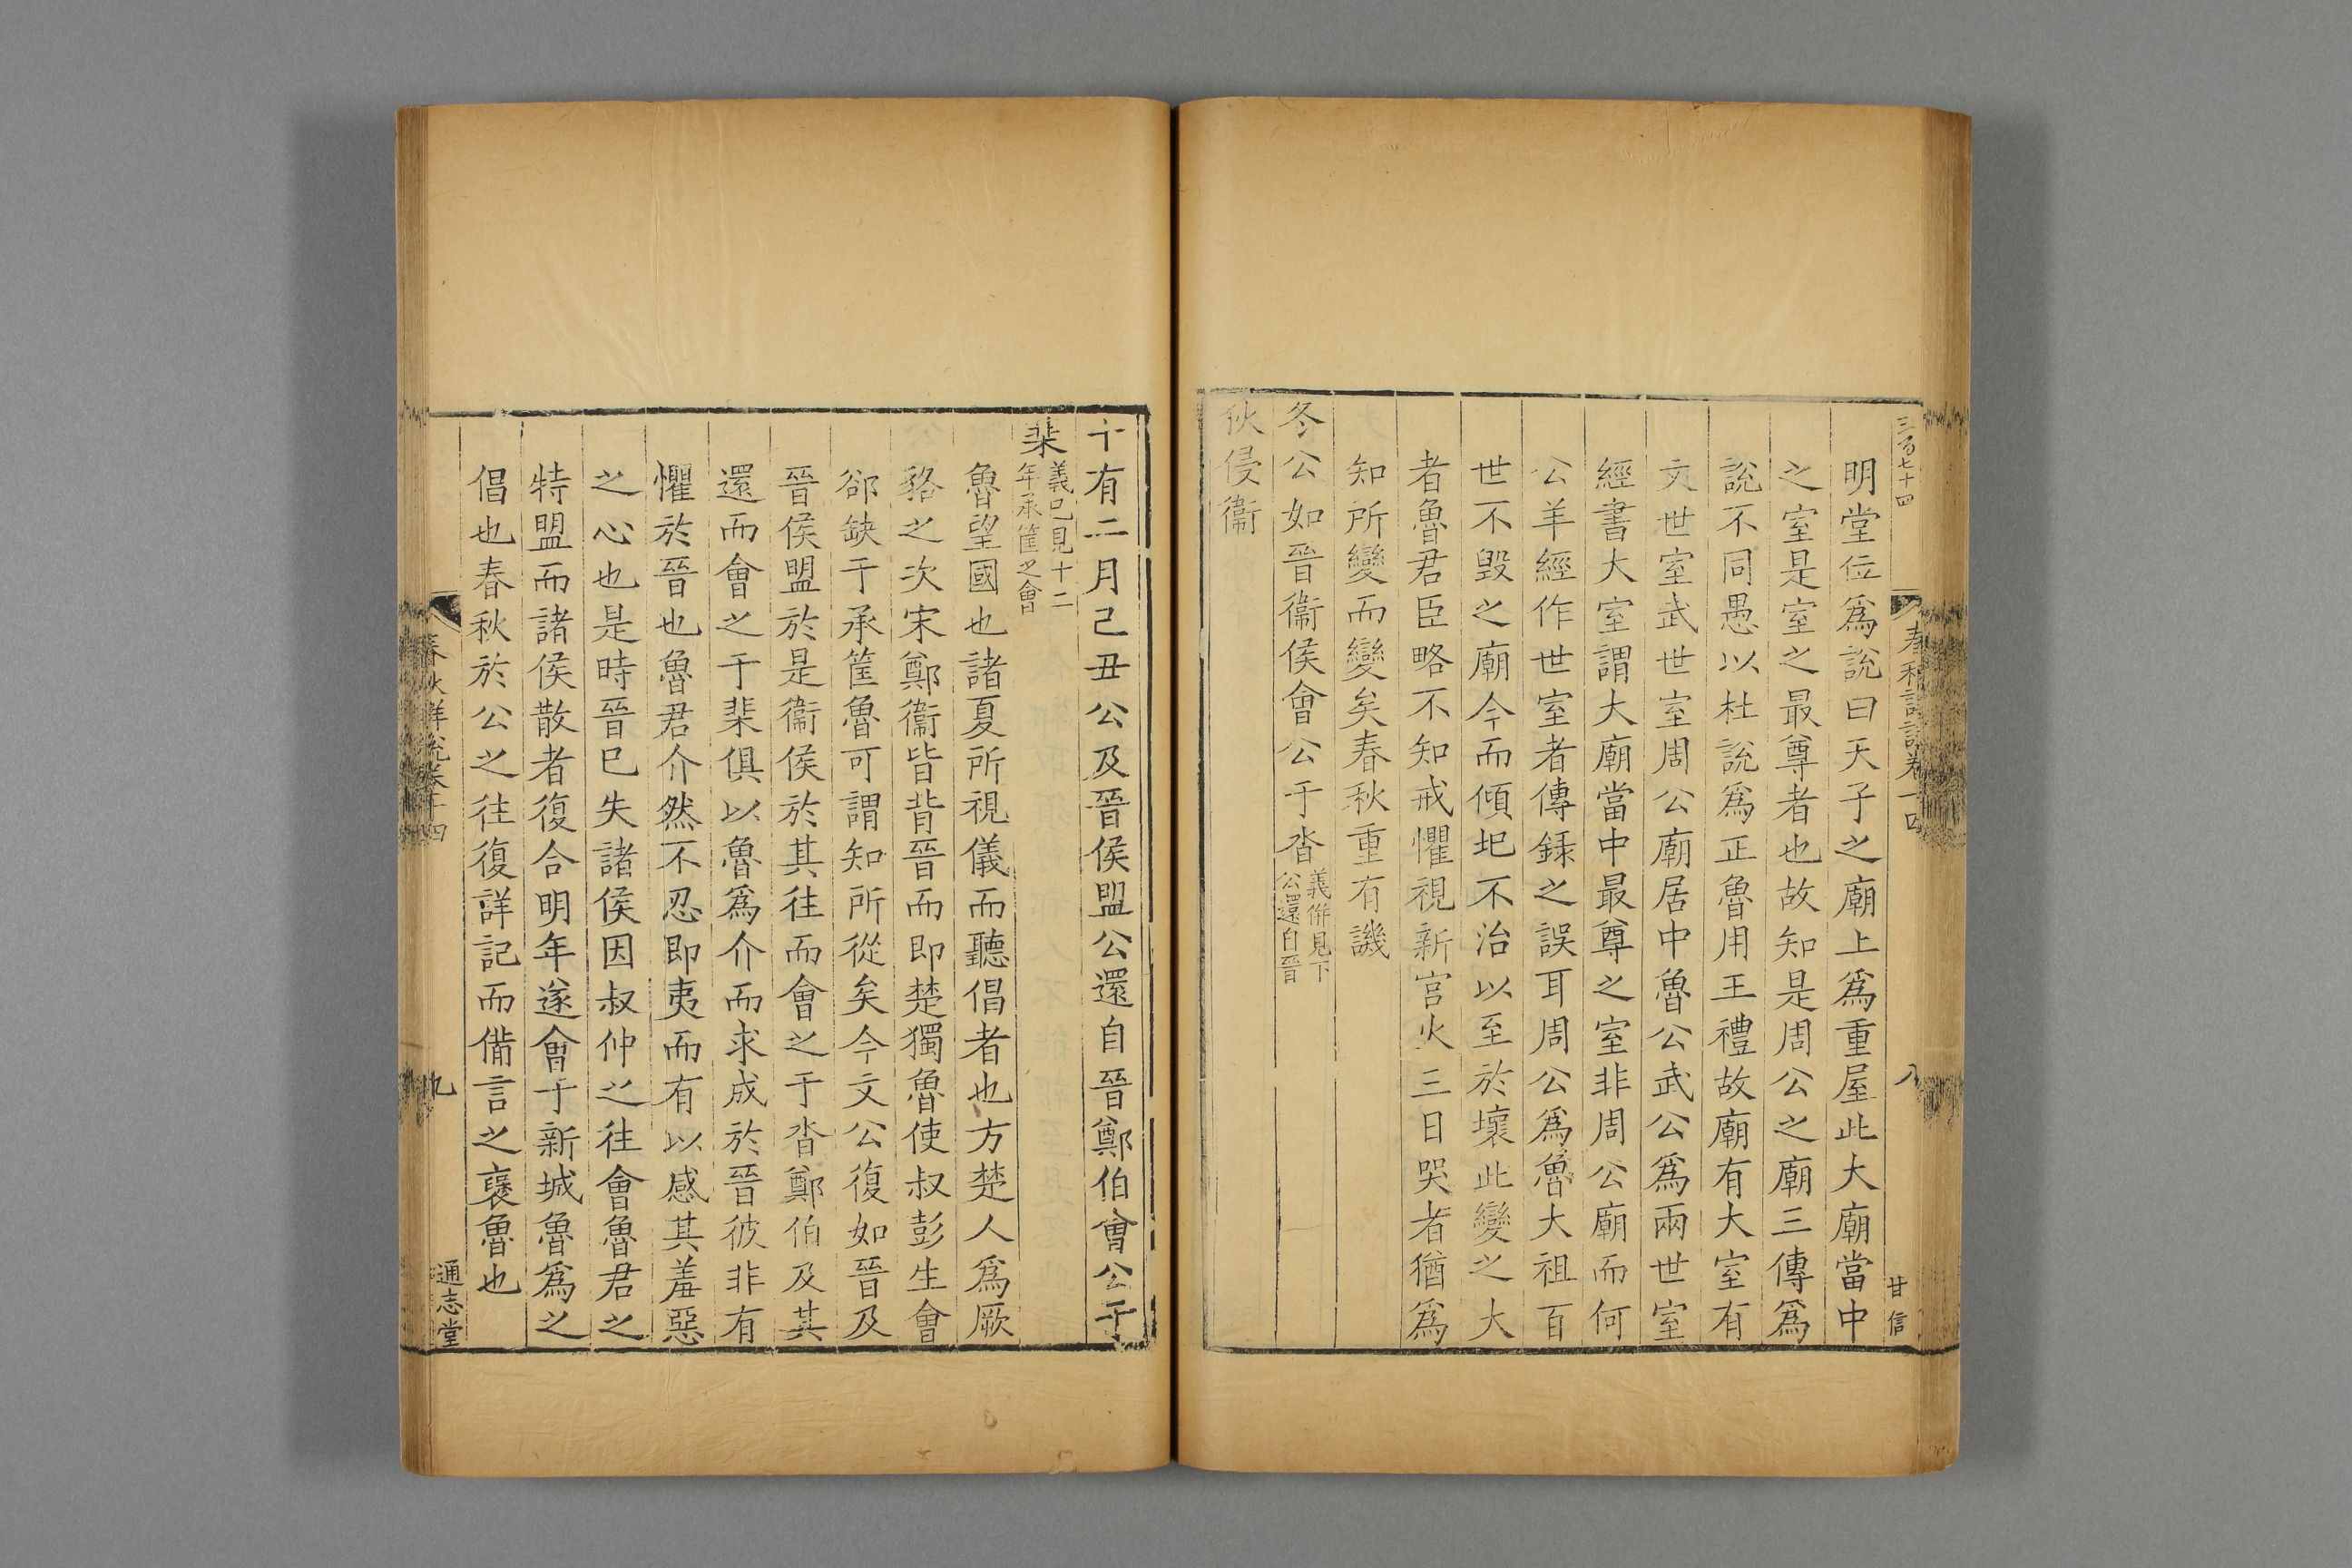 三百七十四
春秋詳說卷十四
八
甘信
明堂位爲說曰天子之廟上爲重屋此大廟當中
之室是室之最尊者也故知是周公之廟三傳爲
說不同愚以杜說爲正魯用王禮故廟有大室有
文世室武世室周公廟居中魯公武公爲兩世室
經書大室謂大廟當中最尊之室非周公廟而何
公羊經作世室者傳録之誤耳周公爲魯大祖百
世不毀之廟今而傾圯不治以至於壞此變之大
者魯君臣略不知戒懼視新宮火三日哭者猶爲
知所變而變矣春秋重有譏
冬公如晉衞侯會公于沓
義併見下
公還自晉
狄侵衞
十有二月己丑公及晉侯盟公還自晉鄭伯會公于
棐
義已見十二
年承筐之會
魯望國也諸夏所視儀而聽倡者也方楚人爲厥
貉之次宋鄭衞皆背晉而即楚獨魯使叔彭生會
郤缺于承筐魯可謂知所從矣今文公復如晉及
晉侯盟於是衞侯於其往而會之于沓鄭伯及其
還而會之于棐俱以魯爲介而求成於晉彼非有
懼於晉也魯君介然不忍即夷而有以感其羞惡
之心也是時晉已失諸侯因叔仲之往會魯君之
特盟而諸侯散者復合明年遂會于新城魯爲之
倡也春秋於公之往復詳記而備言之襃魯也
春秋詳說卷十四
九
通志堂